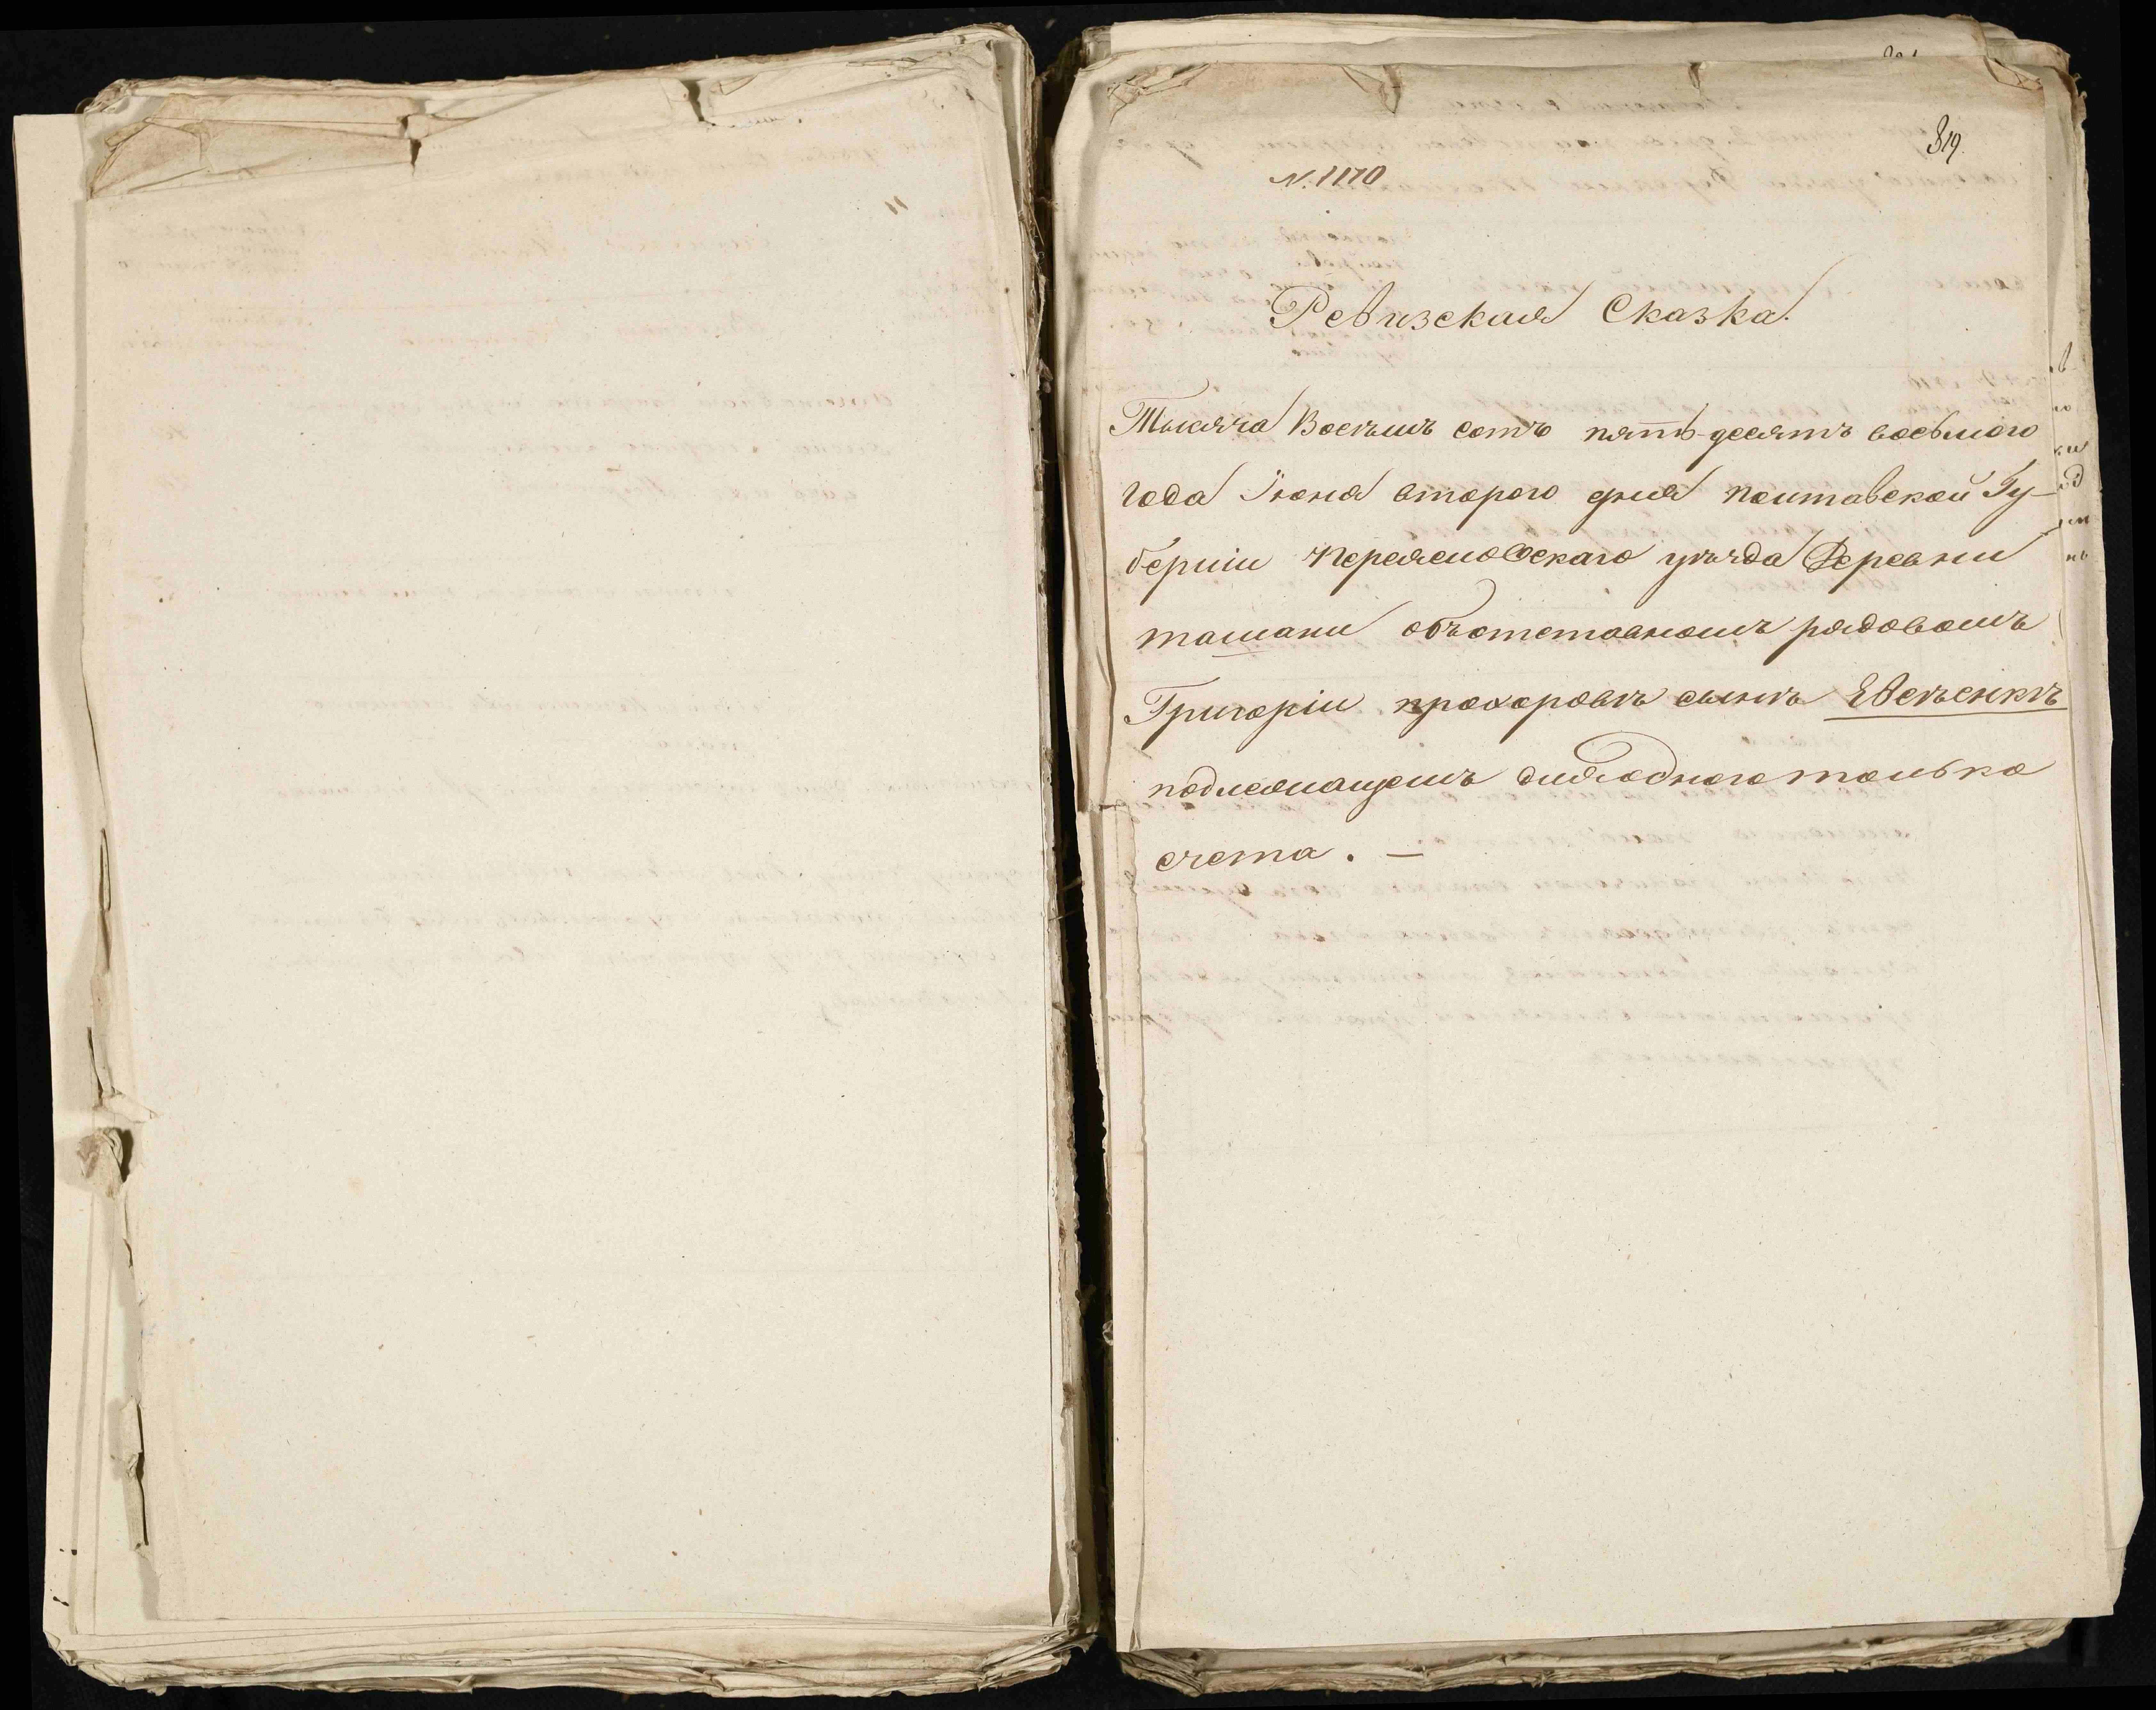 819.
N. 1170
Ревизская Сказка.
Тысяча Восемъ сотъ пятьдесятъ восьмого
года Іюня второго дня полтавской Гу-
берніи переяслов‌скаго уѣзда Деревни
ташани объотставномъ рядовомъ
Григоріи прохоровѣ сынѣ Евсѣенкѣ
подлежащемъ для одного только
счета. —